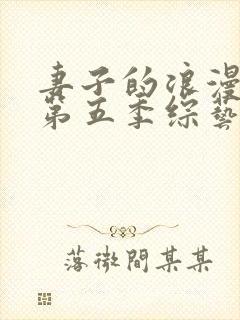 妻子的浪漫
第五季综藝
落微間某某